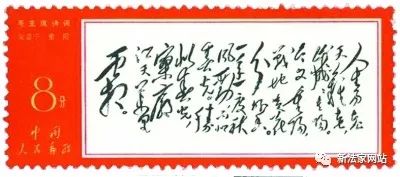 毛主席诗词
采桑子 重阳
8分
中国
人民邮政
人生易老
天难老岁
岁重阳今
又重阳
战地黄花
分外香
一年一度秋
风劲不似
春光胜
似春光
寥廓
江天万里
霜
新法家网站